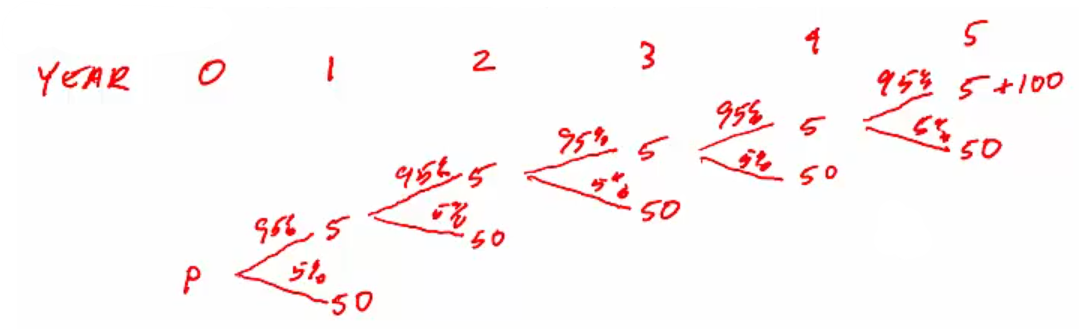 YEAR 0 1 2 3 4 5
95% 5+100
95% 5 5%
95% 5 5% 50
95% 5 5% 50
95% 5 5% 50
P 5% 50
50